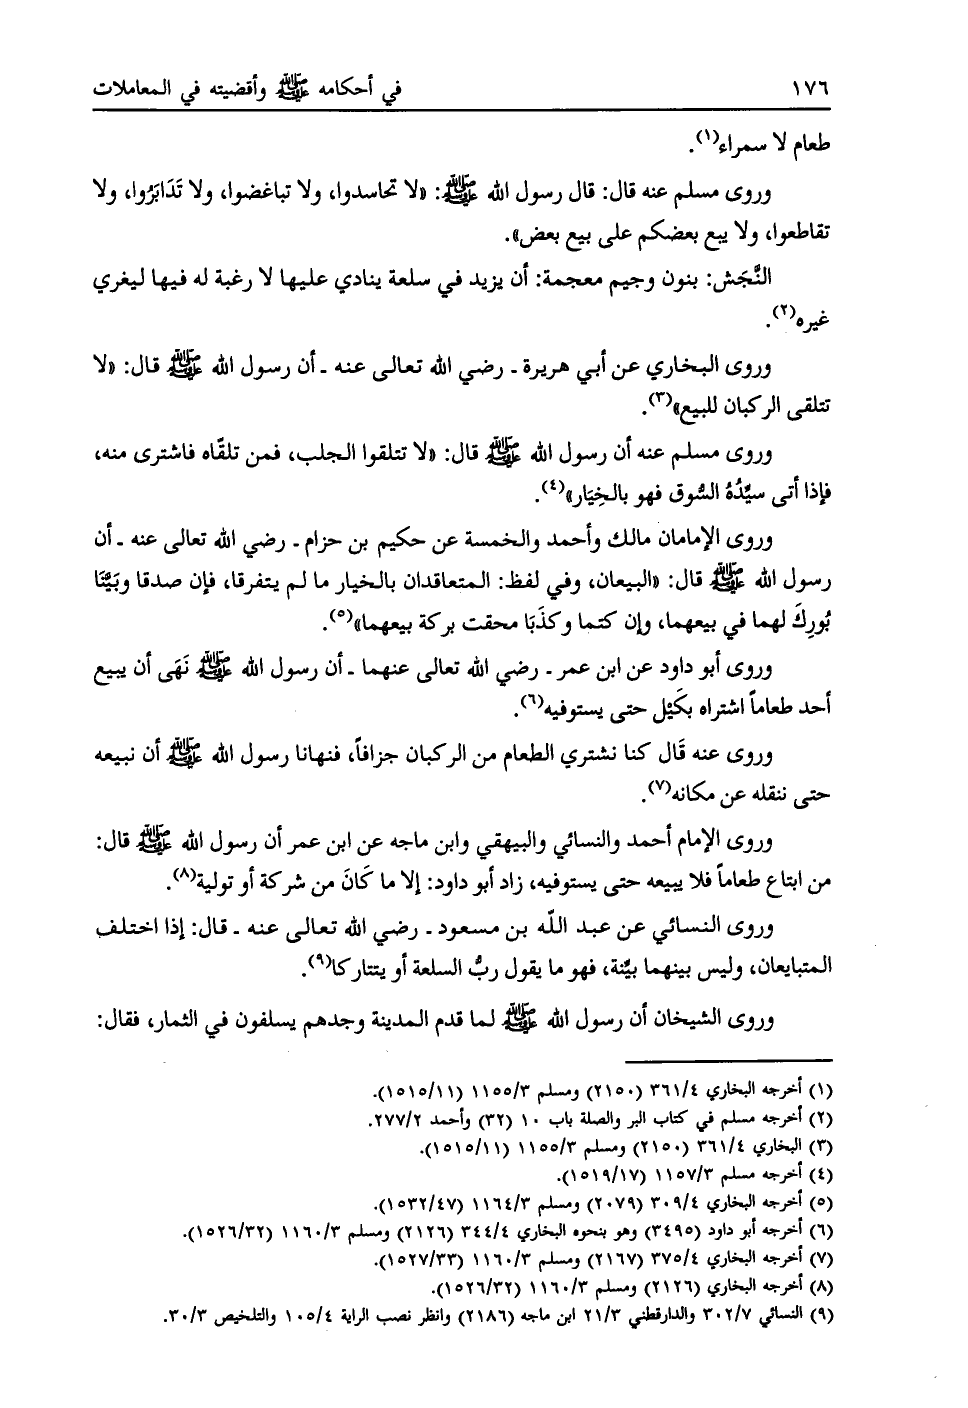 ١٧٦ في أحكامه ﷺ وأقضيته في المعاملات
طعام لا سمراء(١).
وروى مسلم عنه قال: قال رسول الله ﷺ: «لا تحاسدوا، ولا تباغضوا، ولا تَدَابَرُوا، ولا
تقاطعوا، ولا يبع بعضكم على بيع بعض».
النَّجَش: بنون وجيم معجمة: أن يزيد في سلعة ينادي عليها لا رغبة له فيها ليغري
غيره(٢).
وروى البخاري عن أبي هريرة ـ رضي الله تعالى عنه ـ أن رسول الله ﷺ قال: «لا
تتلقى الركبان للبيع»(٣).
وروى مسلم عنه أن رسول الله ﷺ قال: «لا تتلقوا الجلب، فمن تلقّاه فاشترى منه،
فإذا أتى سيِّدُهُ السُّوق فهو بالخِيَار»(٤).
وروى الإمامان مالك وأحمد والخمسة عن حكيم بن حزام ـ رضي الله تعالى عنه ـ أن
رسول الله ﷺ قال: «البيعان، وفي لفظ: المتعاقدان بالخيار ما لم يتفرقا، فإن صدقا وبَيَّنَا
بُورِكَ لهما في بيعهما، وإن كتما وكذَبَا محقت بركة بيعهما»(٥).
وروى أبو داود عن ابن عمر ـ رضي الله تعالى عنهما ـ أن رسول الله ﷺ نَهَى أن يبيع
أحد طعاماً اشتراه بكَيْل حتى يستوفيه(٦).
وروى عنه قَال كنا نشتري الطعام من الركبان جزافاً، فنهانا رسول الله ﷺ أن نبيعه
حتى ننقله عن مكانه(٧).
وروى الإمام أحمد والنسائي والبيهقي وابن ماجه عن ابن عمر أن رسول الله ﷺ قال:
من ابتاع طعاماً فلا يبيعه حتى يستوفيه، زاد أبو داود: إلا ما كَانَ من شركة أو تولية(٨).
وروى النسائي عن عبد اللّه بن مسعود ـ رضي الله تعالى عنه ـ قال: إذا اختلف
المتبايعان، وليس بينهما بيِّنة، فهو ما يقول ربُّ السلعة أو يتتاركا(٩).
وروى الشيخان أن رسول الله ﷺ لما قدم المدينة وجدهم يسلفون في الثمار، فقال:
(١) أخرجه البخاري ٣٦١/٤ (٢١٥٠) ومسلم ١١٥٥/٣ (١٥١٥/١١).
(٢) أخرجه مسلم في كتاب البر والصلة باب ١٠ (٣٢) وأحمد ٢٧٧/٢.
(٣) البخاري ٣٦١/٤ (٢١٥٠) ومسلم ١١٥٥/٣ (١٥١٥/١١).
(٤) أخرجه مسلم ١١٥٧/٣ (١٥١٩/١٧).
(٥) أخرجه البخاري ٣٠٩/٤ (٢٠٧٩) ومسلم ١١٦٤/٣ (١٥٣٢/٤٧).
(٦) أخرجه أبو داود (٣٤٩٥) وهو بنحوه البخاري ٣٤٤/٤ (٢١٢٦) ومسلم ١١٦٠/٣ (١٥٢٦/٣٢).
(٧) أخرجه البخاري ٣٧٥/٤ (٢١٦٧) ومسلم ١١٦٠/٣ (١٥٢٧/٣٣).
(٨) أخرجه البخاري (٢١٢٦) ومسلم ١١٦٠/٣ (١٥٢٦/٣٢).
(٩) النسائي ٣٠٢/٧ والدارقطني ٢١/٣ ابن ماجه (٢١٨٦) وانظر نصب الراية ١٠٥/٤ والتلخيص ٣٠/٣.